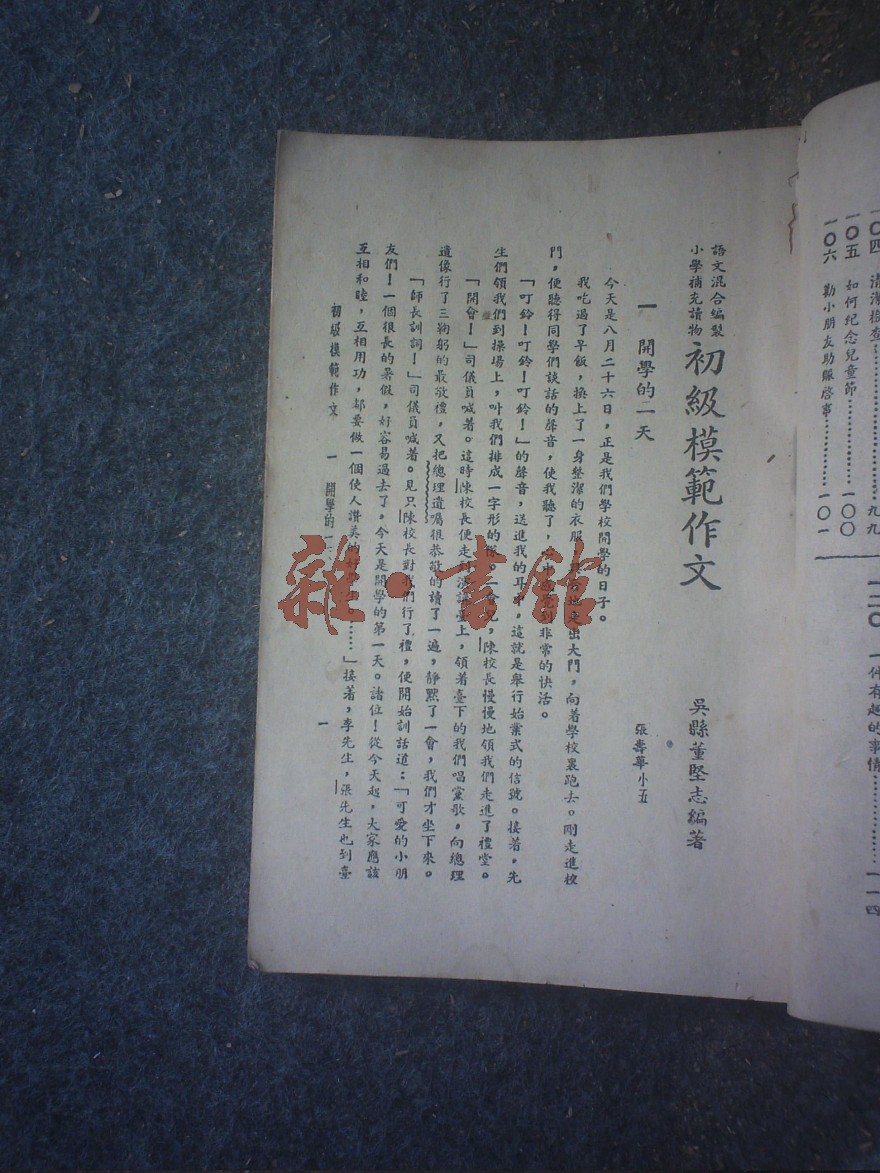 一〇四 清潔檢查……………九九
一〇五 如何紀念兒童節……………一〇〇
一〇六 勸小朋友助賑啓事……………一〇一
一二〇 一件有趣的事情……………一一四
語文混合編製
小學補充讀物
初級模範作文
吳縣董堅志編著
一 開學的一天
張壽華小五
今天是八月二十六日，正是我們學校開學的日子。
我吃過了早飯，換上了一身整潔的衣服，走出大門，向着學校裏跑去。剛走進校
門，便聽得同學們談話的聲音，使我聽了，非常的快活。
「叮鈴！叮鈴！叮鈴！」的聲音，送進我的耳中，這就是舉行始業式的信號。接着，先
生們領我們到操場上，叫我們排成一字形的隊。一會兒，陳校長慢慢地領我們走進了禮堂。
「開會！」司儀員喊着。這時陳校長便走到演講臺上，領着臺下的我們唱黨歌，向總理
遺像行了三鞠躬的最敬禮，又把總理遺囑狠恭敬的讀了一遍，靜默了一會，我們才坐下來。
「師長訓詞！」司儀員喊着。見只陳校長對我們行了禮，便開始訓話道：「可愛的小朋
友們！一個狠長的暑假，好容易過去了，今天是開學的第一天。諸位！從今天起，大家應該
互相和睦，互相用功，都要做一個使人讚美的……」接著，李先生，張先生也到臺
初級模範作文 一 開學的一天 一
雜·書館